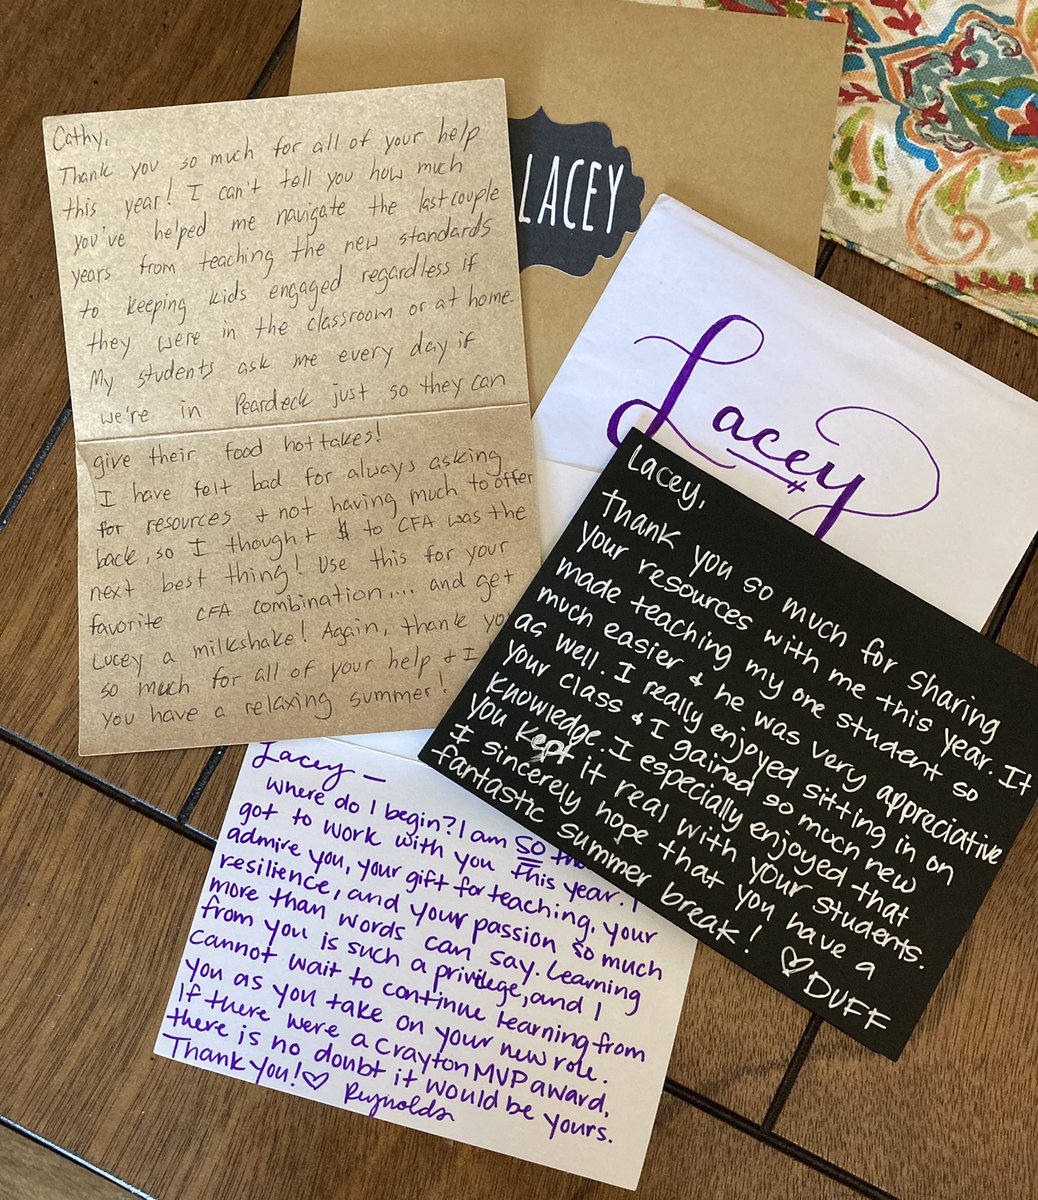 Cathy,
Thank you so much for all of your help
this year! I can't tell you how much
you've helped me navigate the last couple
years from teaching the new standards
to keeping kids engaged regardless if
they were in the classroom or at home.
My students ask me every day if
we're in Peardeck just so they can
give their food hot takes!
I have felt bad for always asking
for resources + not having much to offer
back, so I thought $ to CFA was the
next best thing! Use this for your
favorite CFA combination.... and get
Lucey a milkshake! Again, thank you
so much for all of your help + I
you have a relaxing summer!
LACEY
Lacey
Lacey,
Thank you so much for sharing
your resources with me this year. It
made teaching my one student so
much easier + he was very appreciative
as well. I really enjoyed sitting in on
your class + I gained so much new
knowledge. I especially enjoyed that
you kept it real with your students.
I sincerely hope that you have a
fantastic summer break! ♡ DUFF
Lacey —
Where do I begin? I am SO
got to work with you this year. I
admire you, your gift for teaching, your
resilience, and your passion so much
more than words can say. Learning
from you is such a privilege, and I
cannot wait to continue learning from
you as you take on your new role.
If there were a Crayton MVP award,
there is no doubt it would be yours.
Thank you! ♡ Reynolds